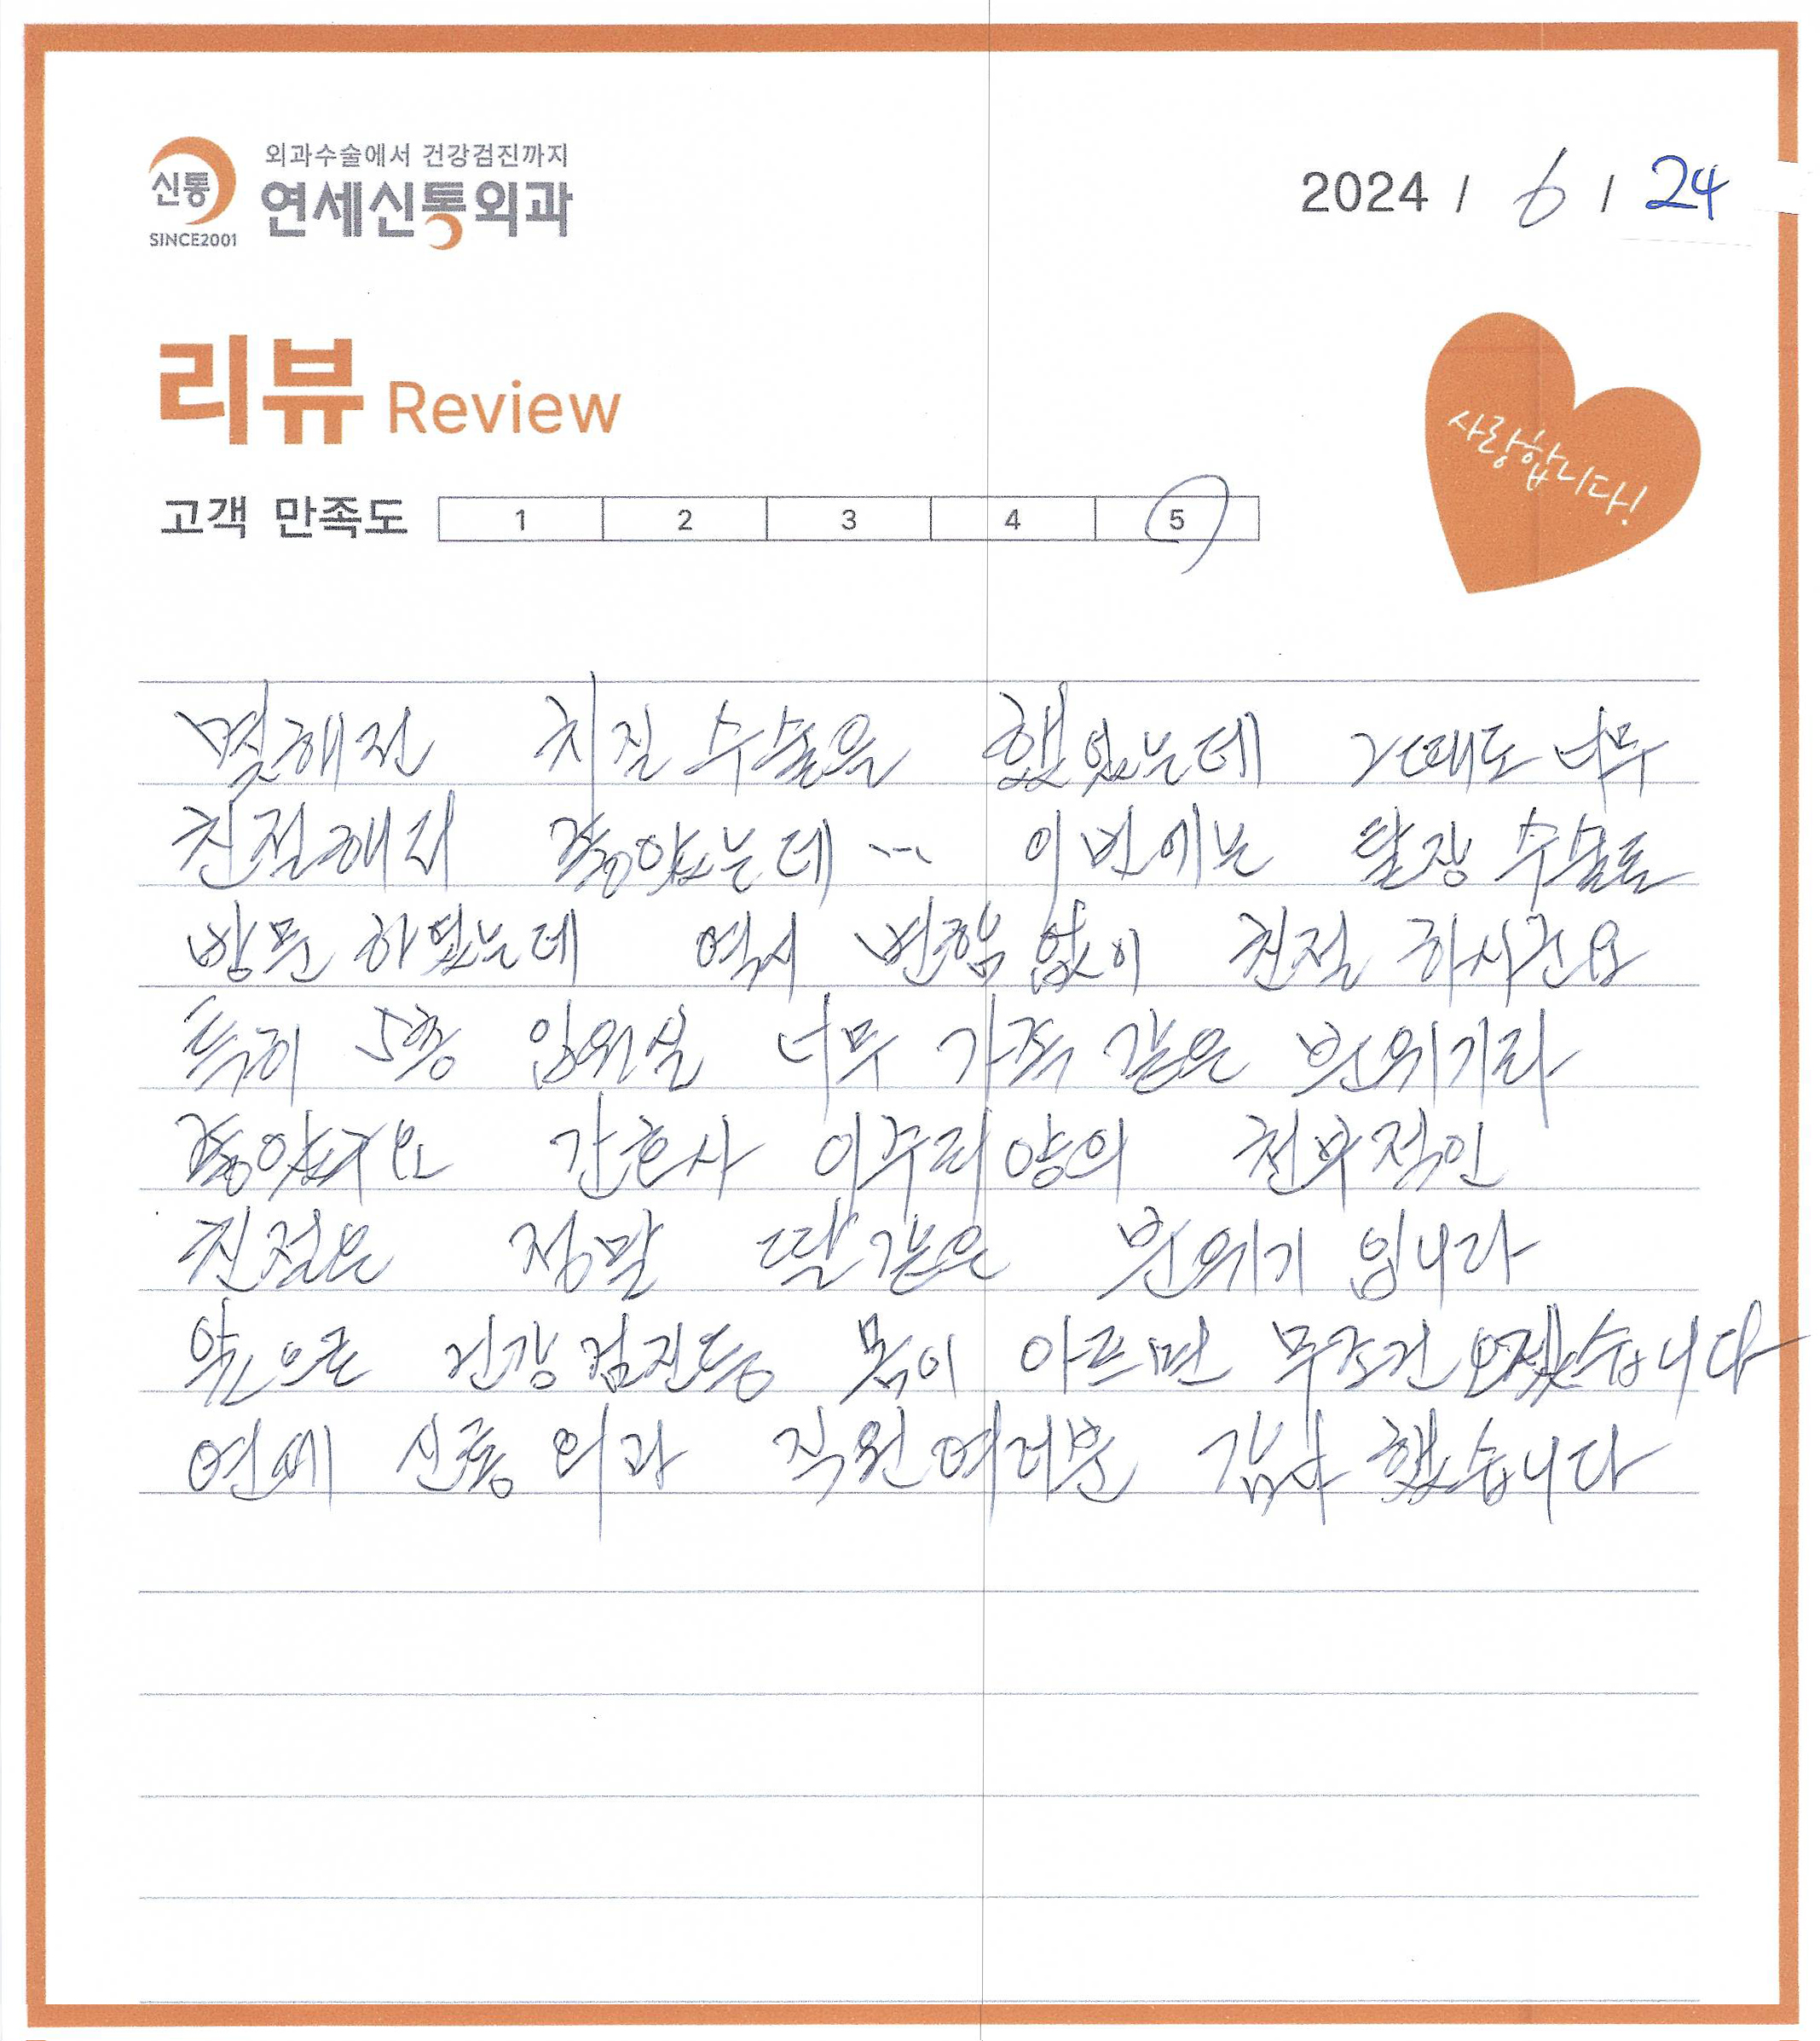 외과수술에서 건강검진까지
신통 연세신통외과
SINCE2001
2024 / 6 / 24
리뷰 Review
사랑합니다!
고객 만족도 1 2 3 4 5
몇해전 치질 수술을 했었는데 그때도 너무
친절해서 좋았었는데 ... 이번에는 탈장 수술로
방문 하였는데 역시 변함 없이 친절 하시군요
특히 5층 입원실 너무 가족 같은 분위기라
좋았지요 간호사 양의 천부적인
친절은 정말 딸 같은 분위기 입니다
앞으로 건강검진등 몸이 아프면 무조건 오겠습니다
연세 신통 외과 직원 여러분 감사 했습니다